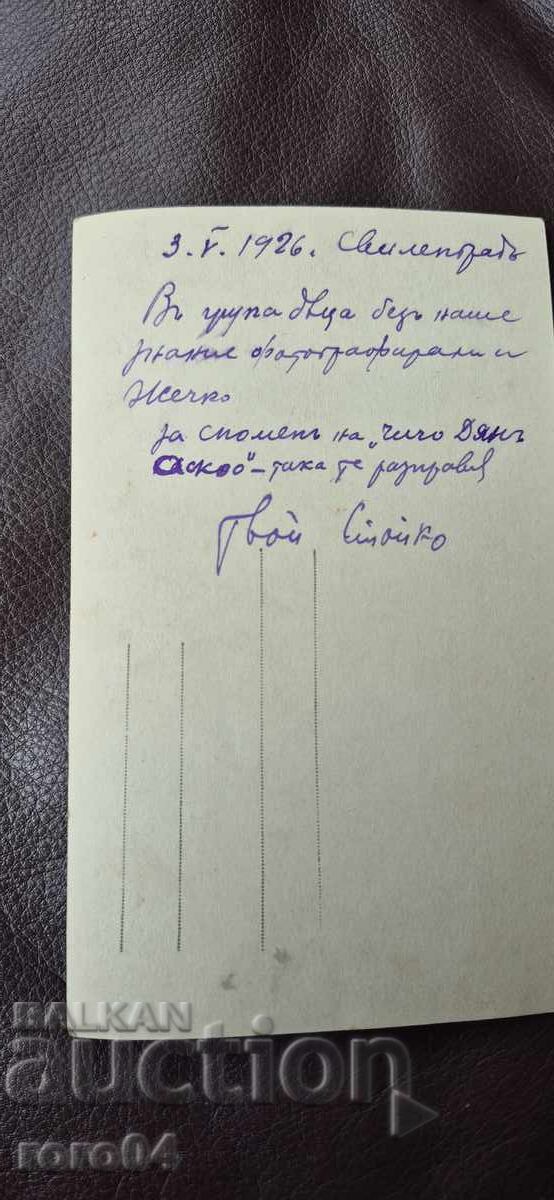 3. V. 1926. Свиленградъ
Въ група дѣца безъ наше
знание фотографирани и
Жечко
за споменъ на „чичо Дянъ
- така те разправя
Твой Стойко
BALKAN
auction
roro04